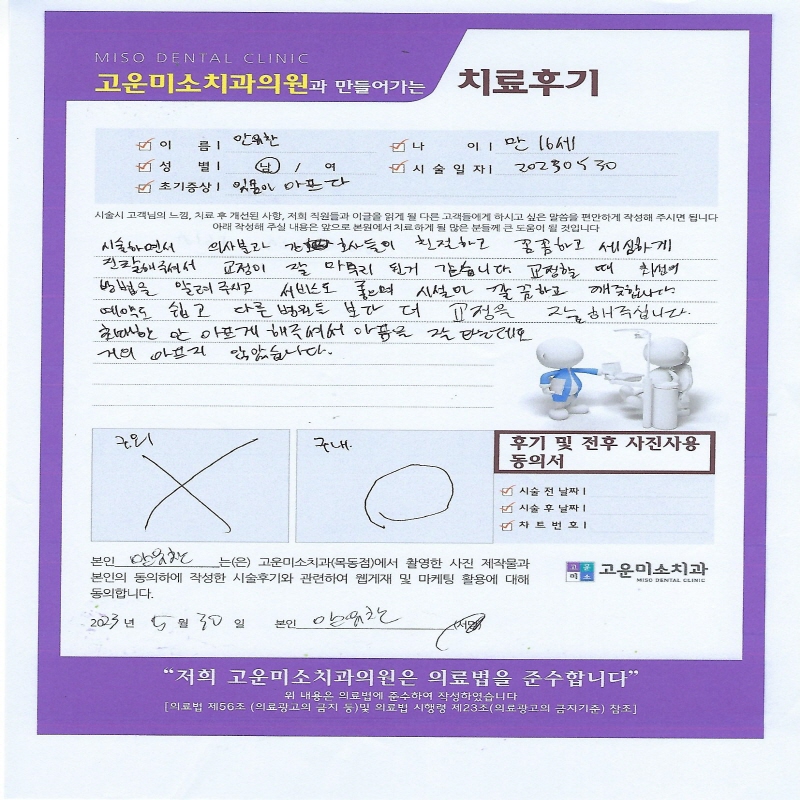 MISO DENTAL CLINIC
고운미소치과의원과 만들어가는 치료후기
이 름 | 안유찬 나 이 | 만 16세
성 별 | 남 / 여 시술일자 | 20230530
초기증상 | 잇몸이 아프다
시술시 고객님의 느낌, 치료 후 개선된 사항, 저희 직원들과 이글을 읽게 될 다른 고객들에게 하시고 싶은 말씀을 편안하게 작성해 주시면 됩니다
아래 작성해 주실 내용은 앞으로 본원에서 치료하게 될 많은 분들께 큰 도움이 될 것입니다
시술하면서 의사분과 간호사들이 친절하고 꼼꼼하고 세심하게
진찰해주셔서 교정이 잘 마무리 된거 같습니다. 교정할 때 최선의
방법을 알려주시고 서비스도 좋으며 시설이 깔끔하고 깨끗합니다
예약도 쉽고 다른 병원들 보다 더 교정을 잘해주십니다.
최대한 안 아프게 해주셔서 아픔을 잘 타는데도
거의 아프지 않았습니다.
국외
국내.
후기 및 전후 사진사용
동의서
시술 전 날짜 |
시술 후 날짜 |
차 트 번 호 |
본인 안유찬 는(은) 고운미소치과(목동점)에서 촬영한 사진 제작물과
본인의 동의하에 작성한 시술후기와 관련하여 웹게재 및 마케팅 활용에 대해
동의합니다.
고운미소
고운미소치과
MISO DENTAL CLINIC
2023 년 5 월 30 일 본인 안유찬 (서명)
“저희 고운미소치과의원은 의료법을 준수합니다”
위 내용은 의료법에 준수하여 작성하였습니다
[의료법 제56조 (의료광고의 금지 등)및 의료법 시행령 제23조(의료광고의 금지기준) 참조]